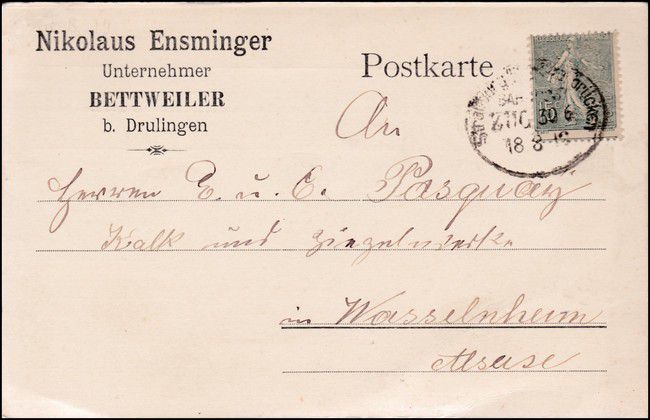 Nikolaus Ensminger
Unternehmer
BETTWEILER
b. Drulingen
Postkarte
Saarbrücken
ZUG 30
18 8
An
Herren E. u. C. Pasquay
Kalk und Ziegelwerke
in Wasselnheim
Alsace